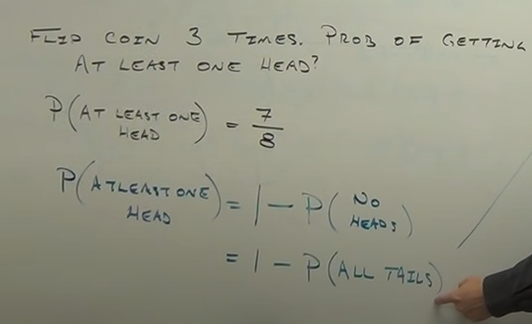 FLIP COIN 3 TIMES. PROB OF GETTING
AT LEAST ONE HEAD?
P(AT LEAST ONE HEAD) = 7/8
P(AT LEAST ONE HEAD) = 1 - P(NO HEADS)
= 1 - P(ALL TAILS)